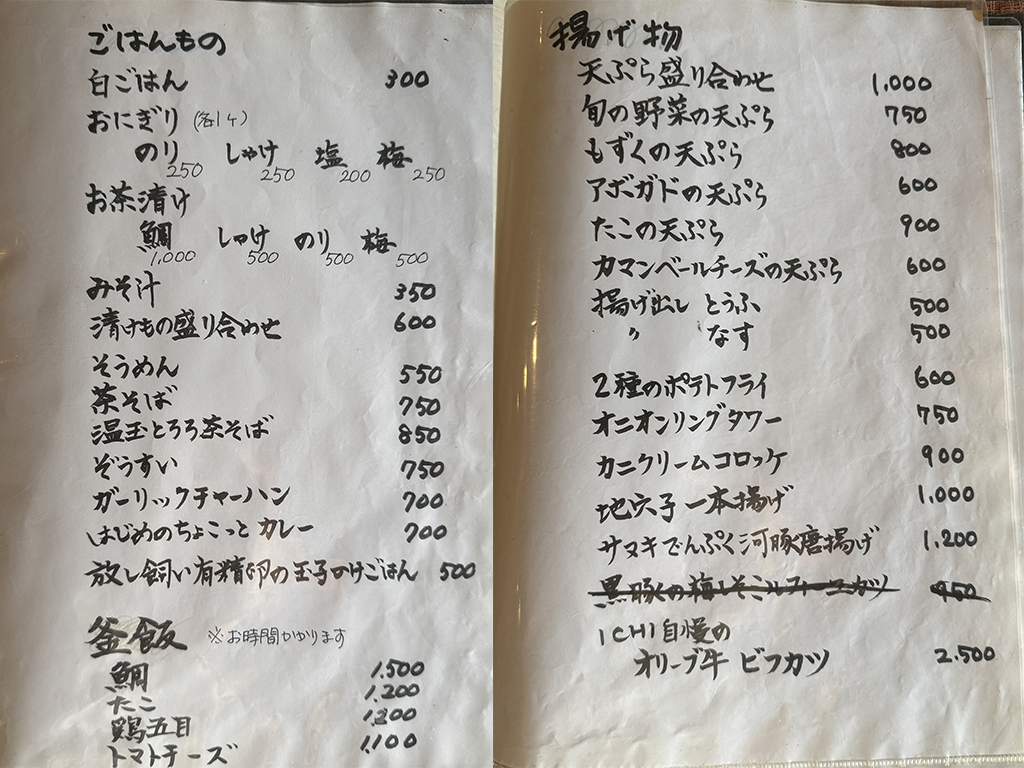 ごはんもの
白ごはん 300
おにぎり (各1ケ)
のり 250 しゃけ 250 塩 200 梅 250
お茶漬け
鯛 1,000 しゃけ 500 のり 500 梅 500
みそ汁 350
漬けもの盛り合わせ 600
そうめん 550
茶そば 750
温玉とろろ茶そば 850
ぞうすい 750
ガーリックチャーハン 700
はじめのちょこっとカレー 700
放し飼い有精卵の玉子かけごはん 500
釜飯 ※お時間かかります
鯛 1,500
たこ 1,200
鶏五目 1,200
トマトチーズ 1,100
揚げ物
天ぷら盛り合わせ 1,000
旬の野菜の天ぷら 750
もずくの天ぷら 800
アボガドの天ぷら 600
たこの天ぷら 900
カマンベールチーズの天ぷら 600
揚げ出し とうふ 500
〃 なす 500
2種のポテトフライ 600
オニオンリングタワー 750
カニクリームコロッケ 900
地穴子一本揚げ 1,000
サヌキでんぷく河豚唐揚げ 1,200
黒豚の梅しそミルフィーユカツ 950
ICHI自慢の
オリーブ牛 ビフカツ 2,500